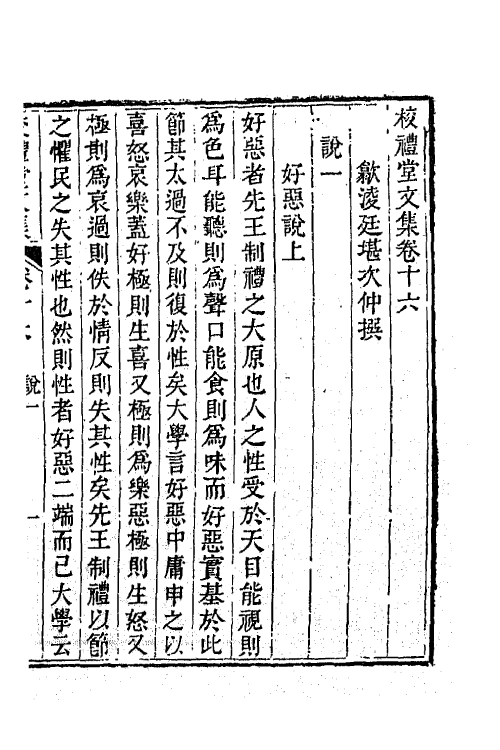 校禮堂文集卷十六
歙淩廷堪次仲撰
說一
好惡說上
好惡者先王制禮之大原也人之性受於天目能視則
為色耳能聽則為聲口能食則為味而好惡實基於此
節其太過不及則復於性矣大學言好惡中庸申之以
喜怒哀樂蓋好極則生喜又極則為樂惡極則生怒又
極則為哀過則佚於情反則失其性矣先王制禮以節
之懼民之失其性也然則性者好惡二端而已大學云
說一
一